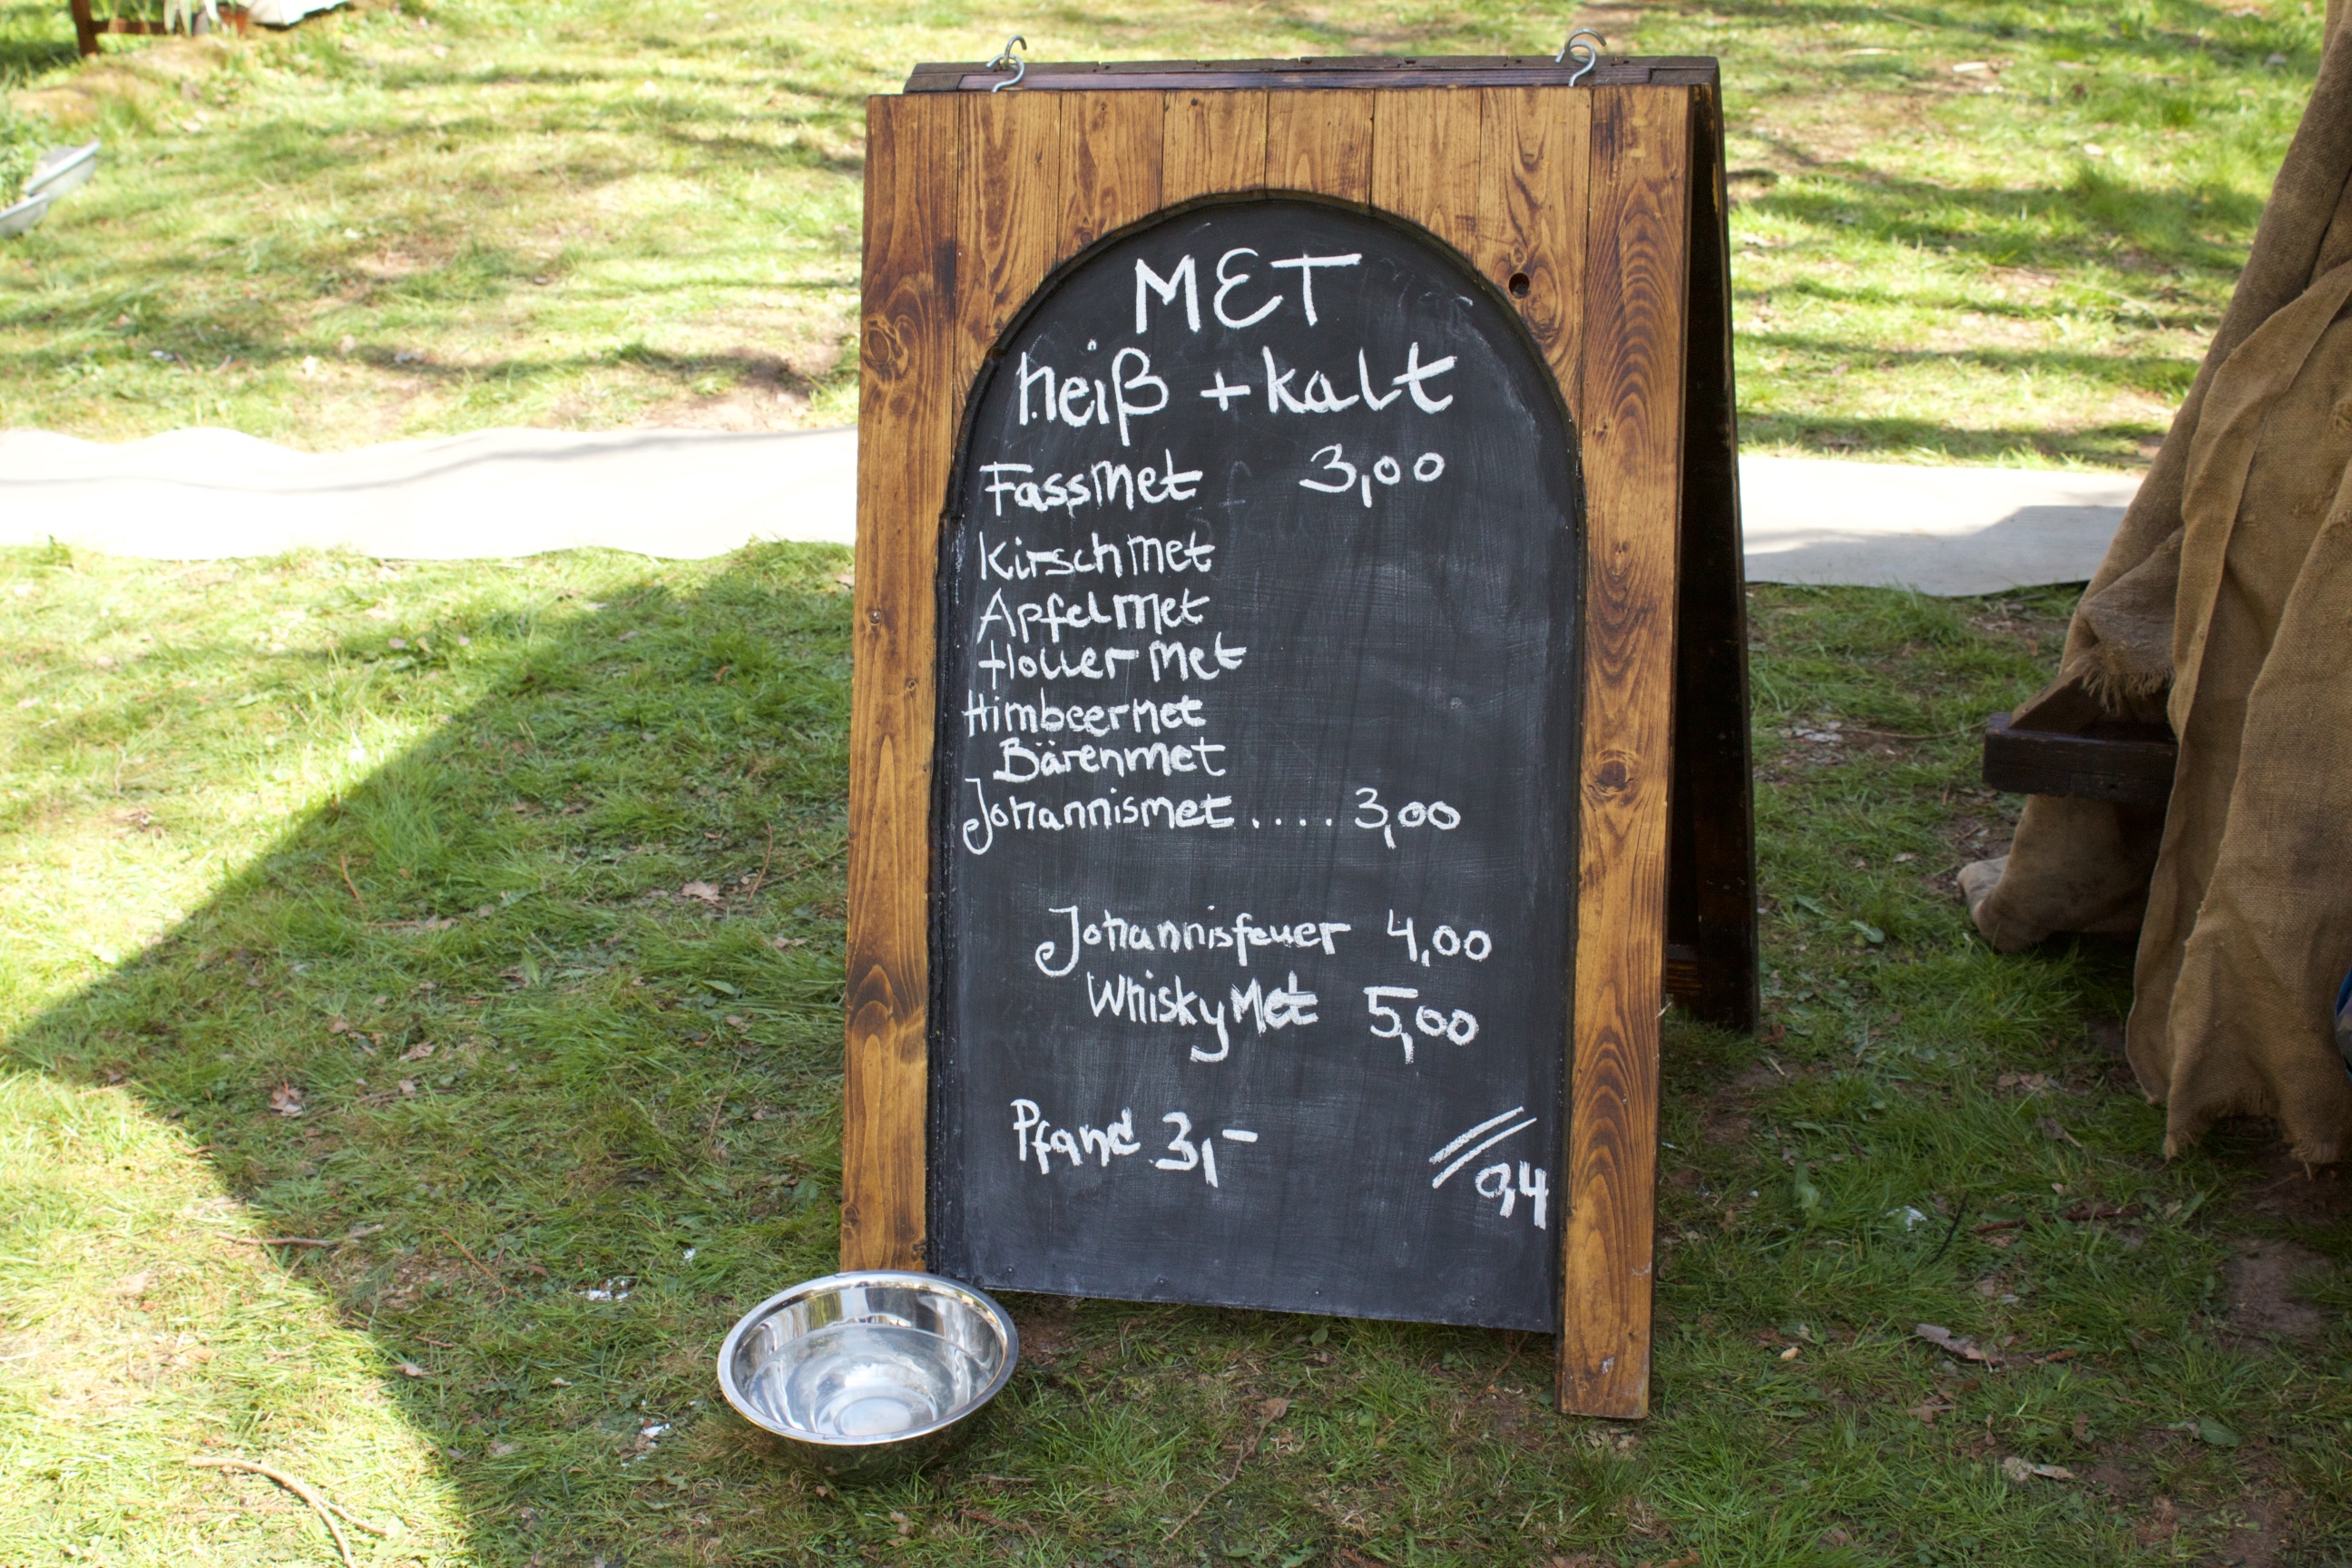 MET
heiß + kalt
Fassmet 3,00
Kirschmet
Apfelmet
Holler Met
Himbeermet
Bärenmet
Johannismet .... 3,00
Johannisfeuer 4,00
Whisky Met 5,00
Pfand 3,-
0,4